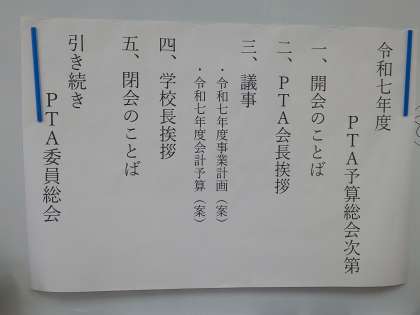 令和七年度
PTA予算総会次第
一、開会のことば
二、PTA会長挨拶
三、議事
・令和七年度事業計画（案）
・令和七年度会計予算（案）
四、学校長挨拶
五、閉会のことば
引き続き
PTA委員総会